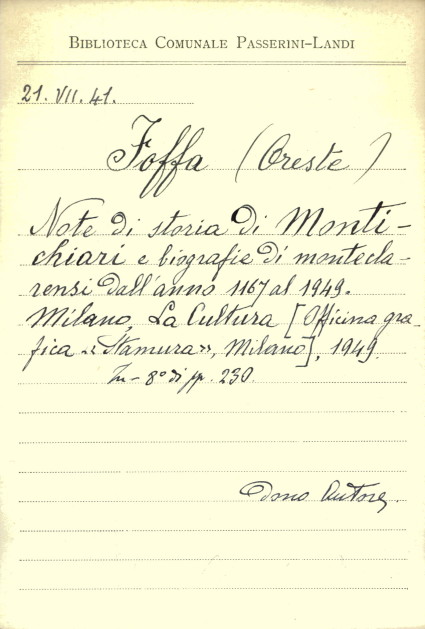 BIBLIOTECA COMUNALE PASSERINI-LANDI
21. VII. 41.
Foffa (Oreste)
Note di storia di Monti-
chiari e biografie di montecla-
rensi dall'anno 1167 al 1949.
Milano, La Cultura [Officina gra-
fica «Stamura», Milano], 1949.
In-8° di pp. 230.
Dono Autore.